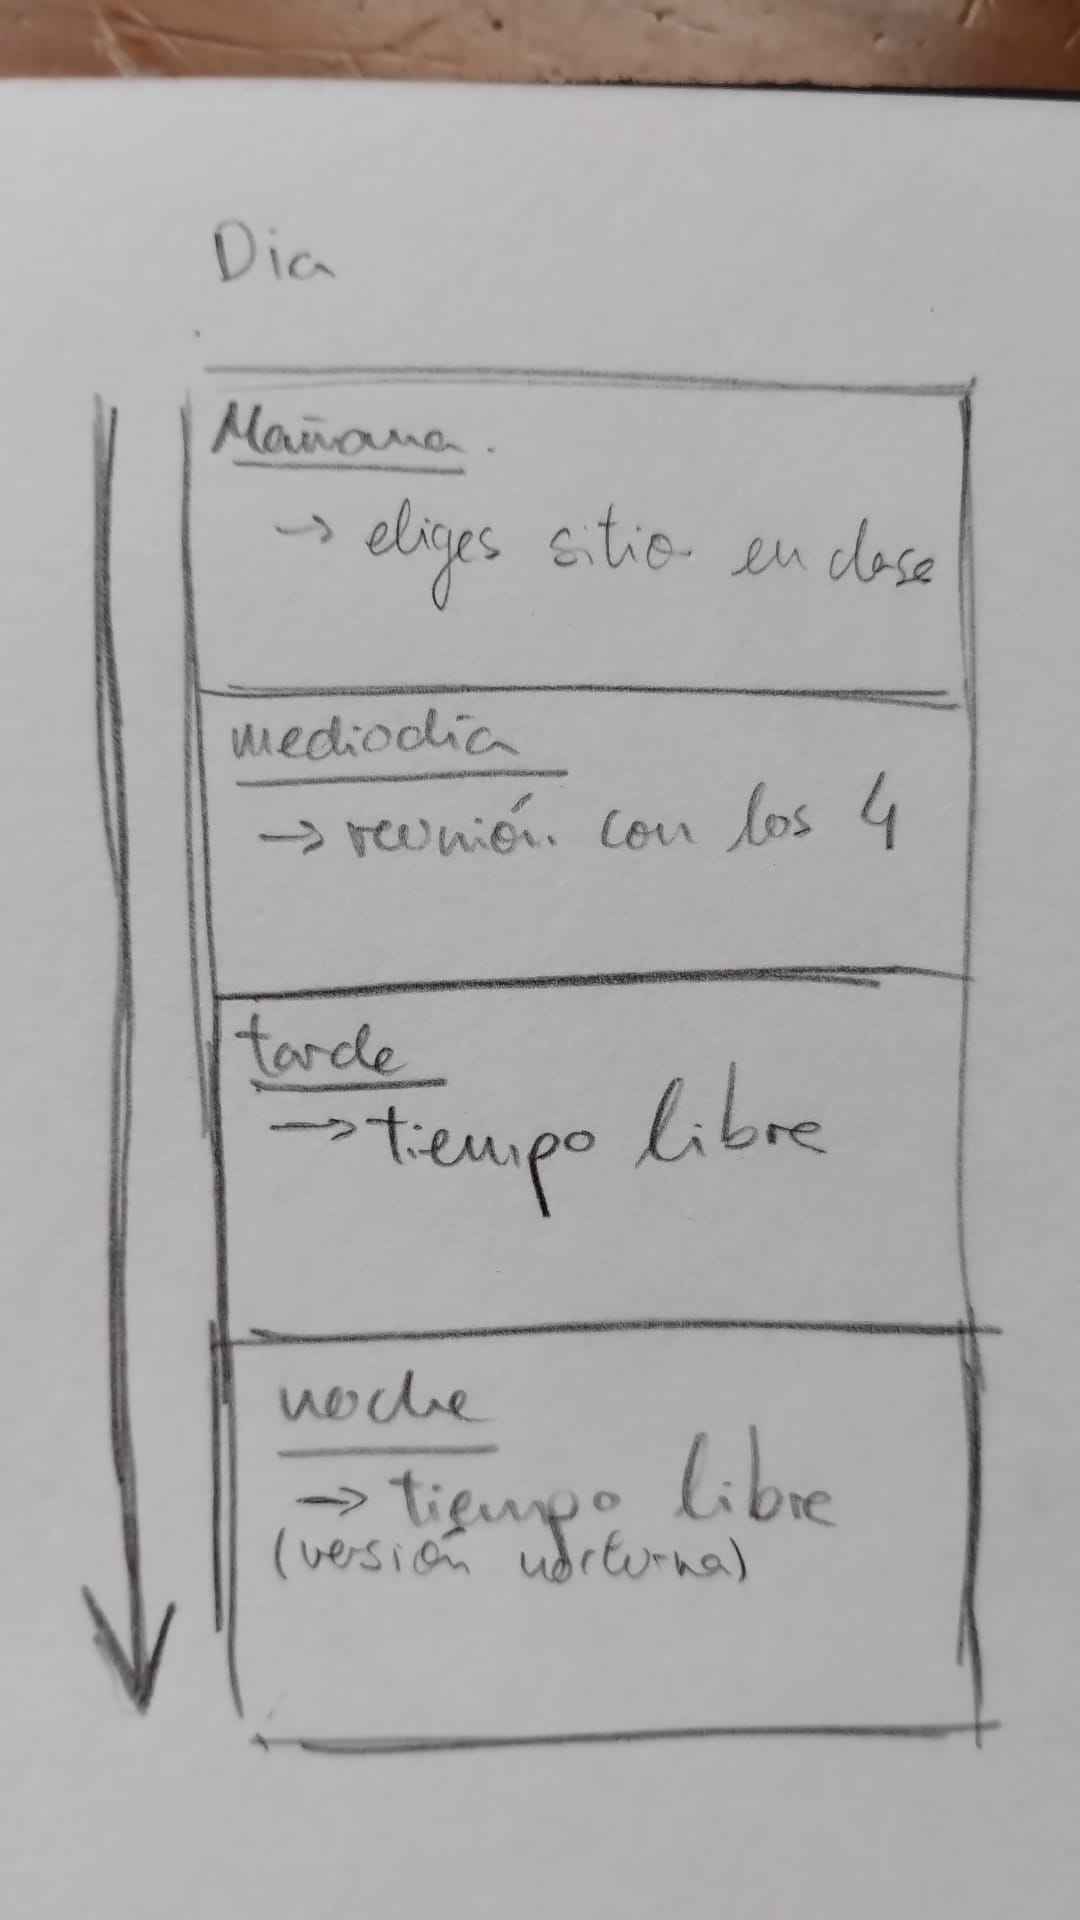 Dia
Mañana.
→ eliges sitio en clase
mediodía
→ reunión. con los 4
tarde
→ tiempo libre
noche
→ tiempo libre
(versión nocturna)